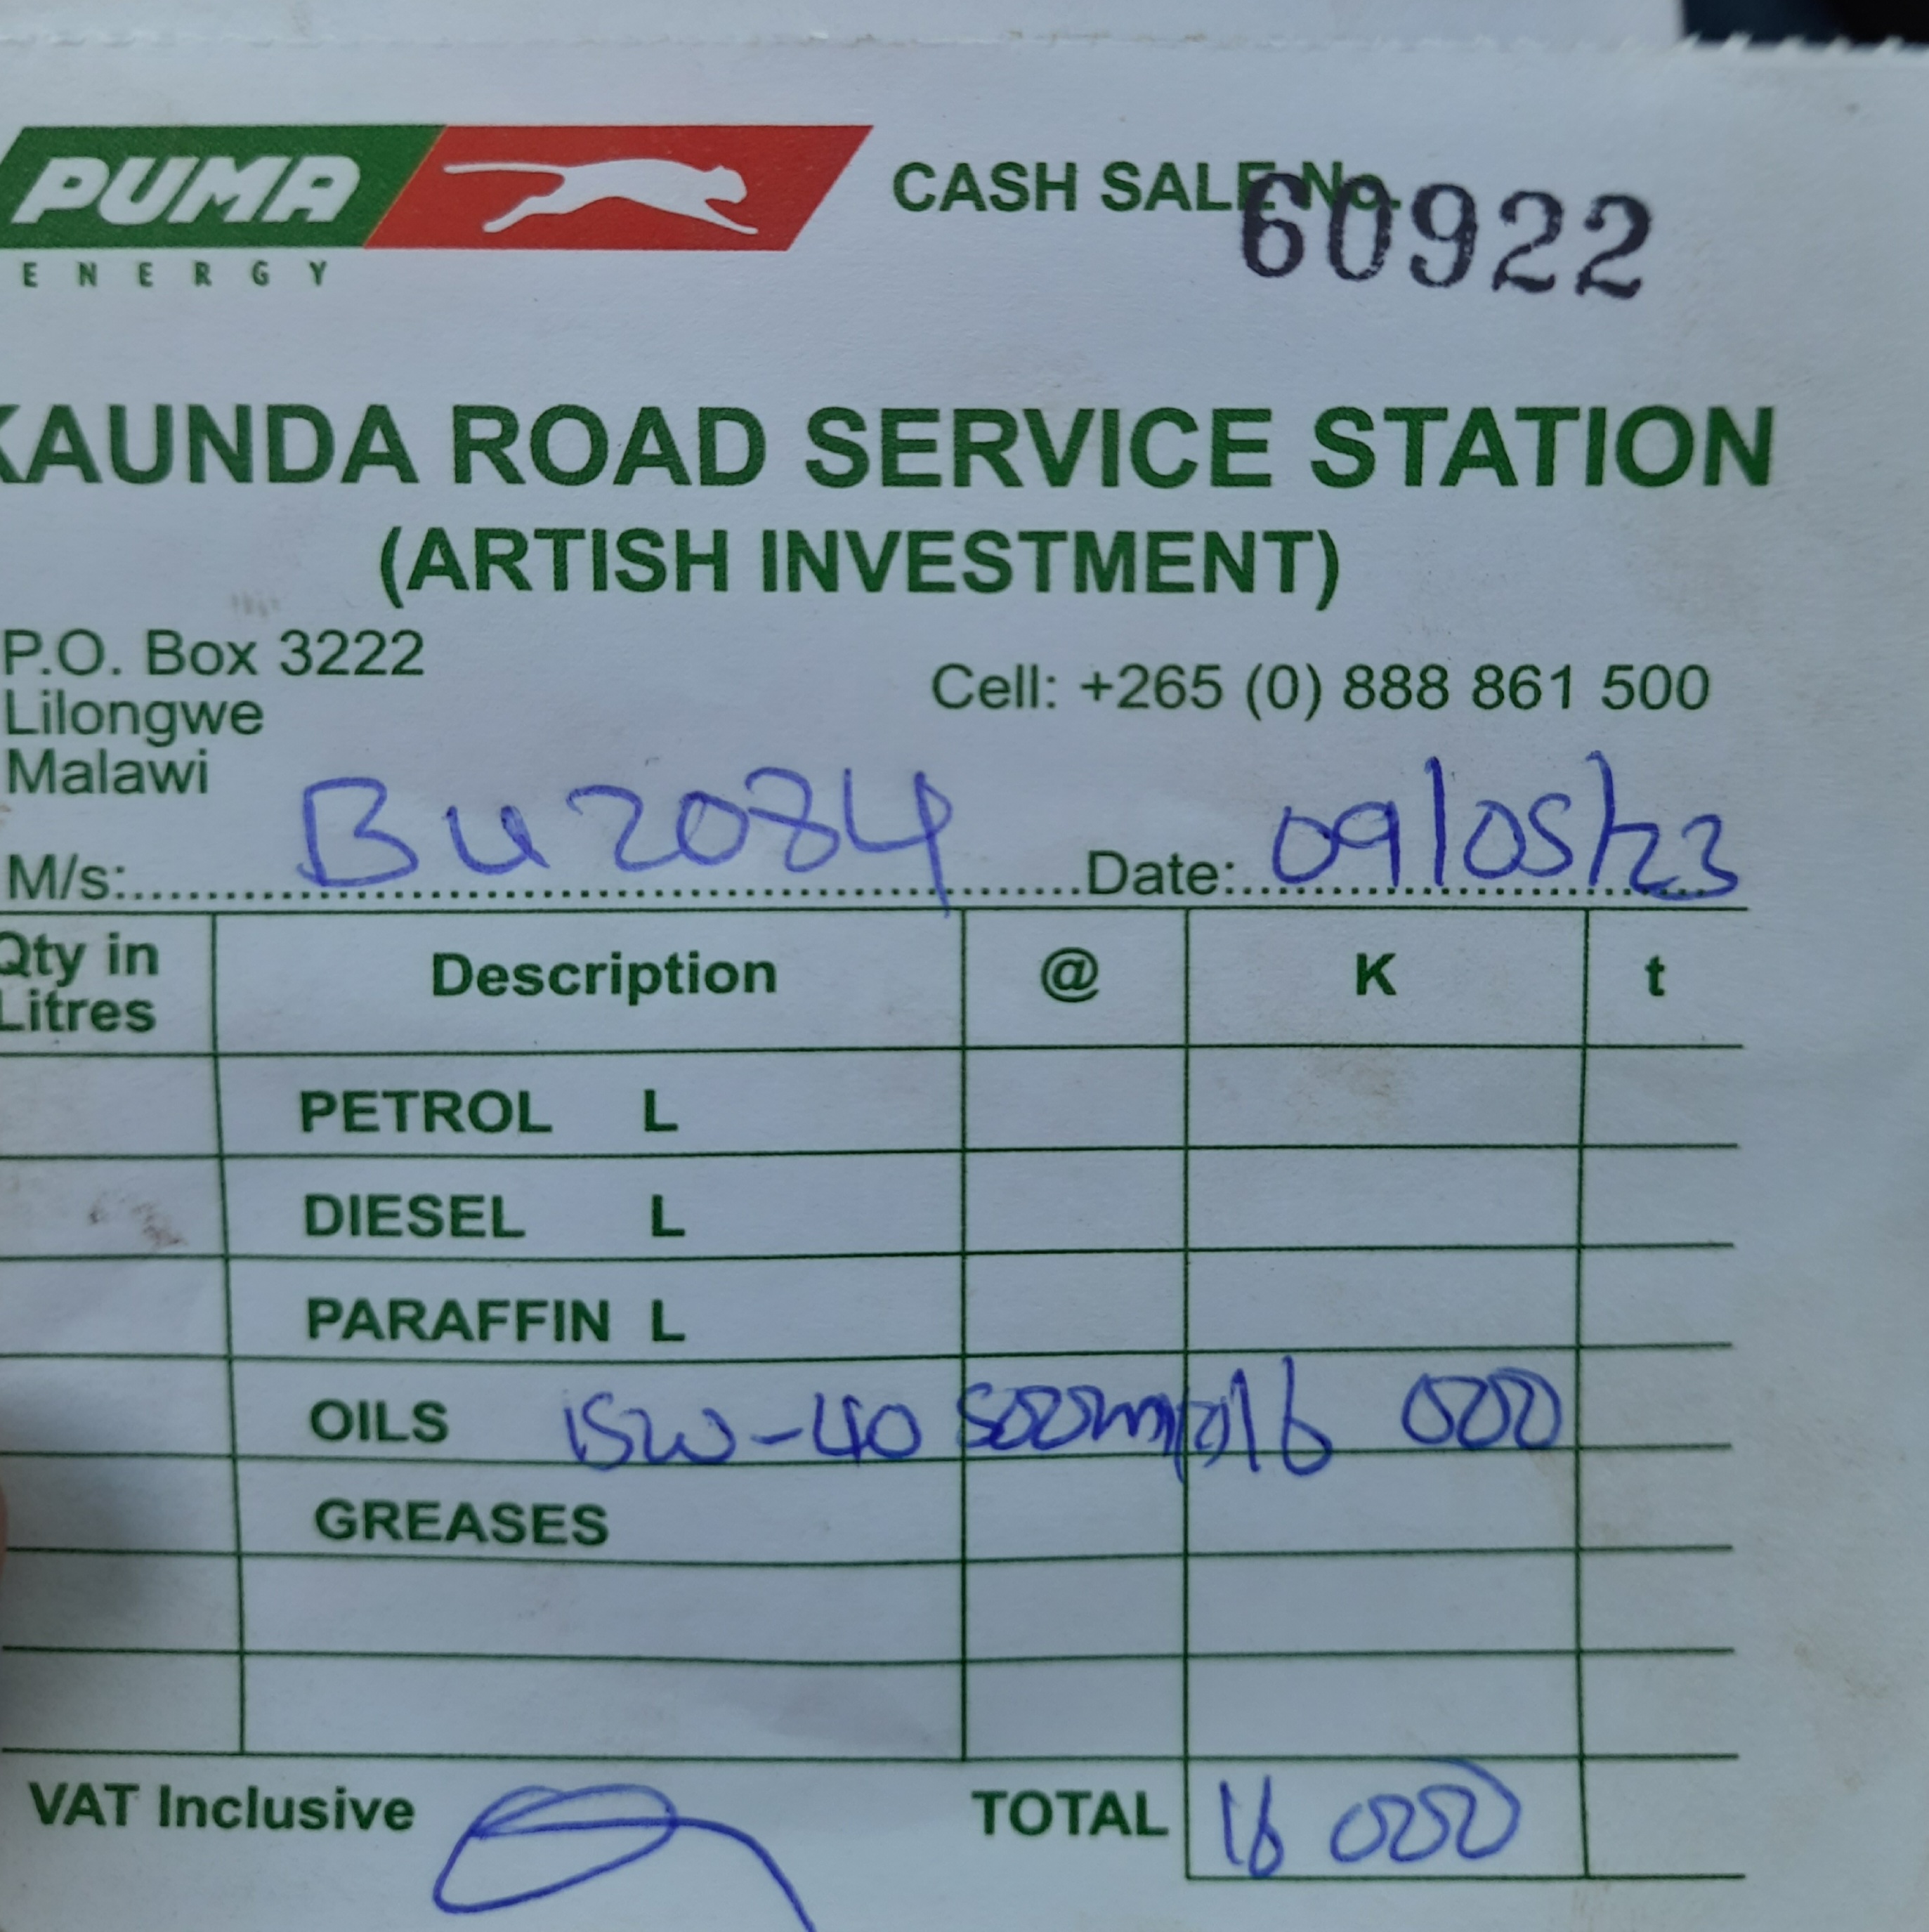 PUMA
ENERGY
CASH SALE No.
60922
KAUNDA ROAD SERVICE STATION
(ARTISH INVESTMENT)
P.O. Box 3222
Lilongwe
Malawi
Cell: +265 (0) 888 861 500
M/s: BU 2084 Date: 09/05/23
Qty in Litres Description @ K t
PETROL L
DIESEL L
PARAFFIN L
OILS 15W-40 500ml 16 000
GREASES
VAT Inclusive TOTAL 16 000